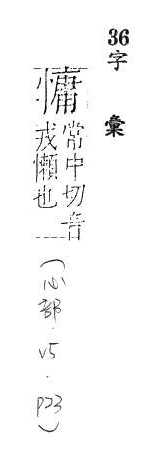 36字彙
慵
常中切音
戎懶也
(心部.v5.p23)